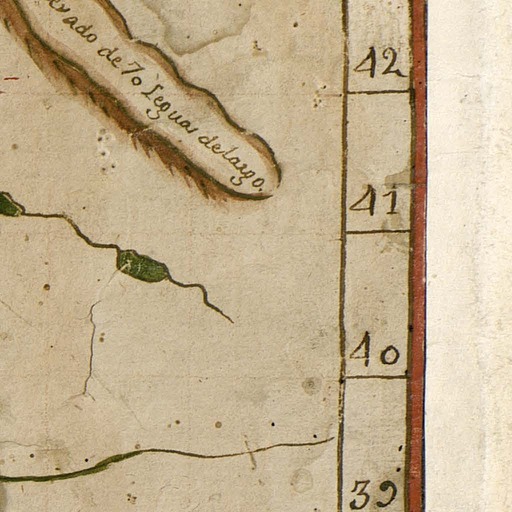 de 70 Leguas de largo.
42
41
40
39